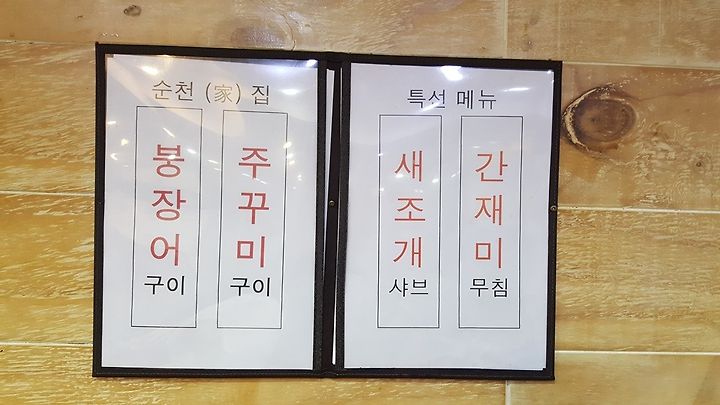 순천 (家) 집
붕장어
구이
주꾸미
구이
특선 메뉴
새조개
샤브
간재미
무침